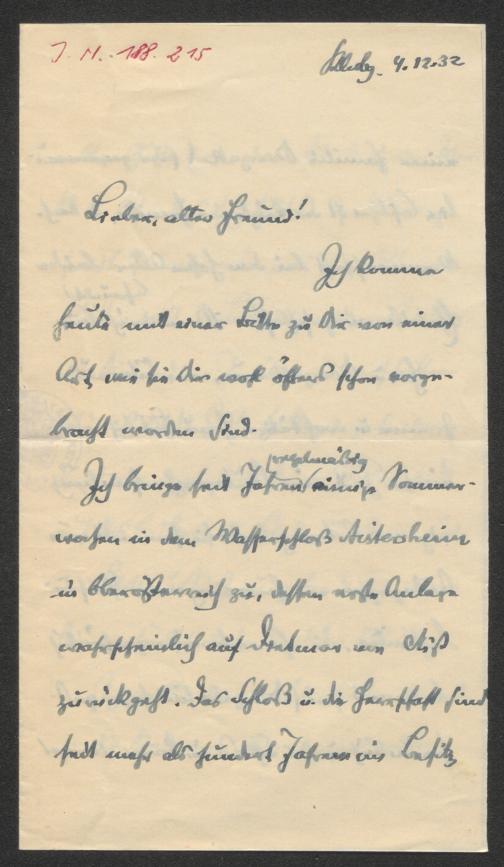 J. N. 188.215
4.12.32
Lieber, alter Freund!
Ich komme
heute mit einer Bitte zu Dir von einer
Art, wie sie Dir wohl öfters schon vorge-
bracht worden sind.
Ich bringe seit Jahren regelmäßig einige Sommer-
wochen in dem Wasserschloß Aistersheim
in Oberösterreich zu, dessen erste Anlage
wahrscheinlich auf Dietmar von Aist
zurückgeht. Das Schloß u. die Herrschaft sind
seit mehr als hundert Jahren im Besitz